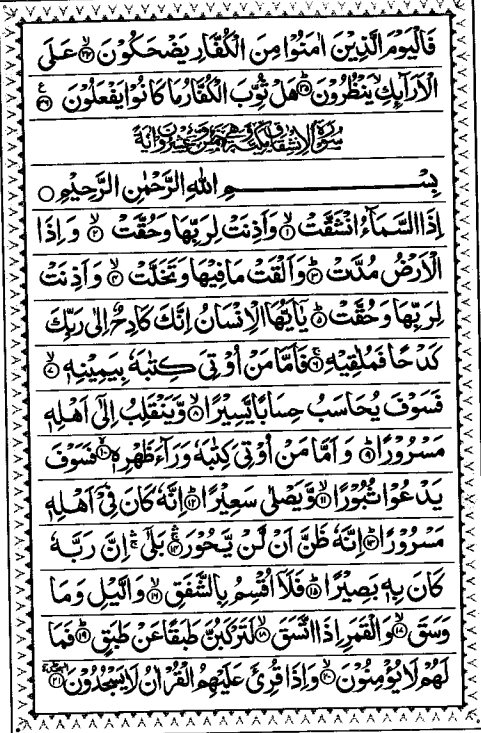 فَالْيَوْمَ الَّذِيْنَ اٰمَنُوْا مِنَ الْكُفَّارِ يَضْحَكُوْنَ ﴿۳۴﴾ عَلَى
الْاَرَآىِٕكِ يَنْظُرُوْنَ ﴿۳۵﴾ هَلْ ثُوِّبَ الْكُفَّارُ مَا كَانُوْا يَفْعَلُوْنَ ﴿۳۶﴾
سُوْرَةُ الْاِنْشِقَاقِ مَكِّيَّةٌ وَّهِيَ خَمْسٌ وَّعِشْرُوْنَ اٰيَةً
بِسْمِ اللهِ الرَّحْمٰنِ الرَّحِيْمِ
اِذَا السَّمَآءُ انْشَقَّتْ ﴿۱﴾ وَاَذِنَتْ لِرَبِّهَا وَحُقَّتْ ﴿۲﴾ وَاِذَا
الْاَرْضُ مُدَّتْ ﴿۳﴾ وَاَلْقَتْ مَا فِيْهَا وَتَخَلَّتْ ﴿۴﴾ وَاَذِنَتْ
لِرَبِّهَا وَحُقَّتْ ﴿۵﴾ يٰۤاَيُّهَا الْاِنْسَانُ اِنَّكَ كَادِحٌ اِلٰى رَبِّكَ
كَدْحًا فَمُلٰقِيْهِ ﴿۶﴾ فَاَمَّا مَنْ اُوْتِيَ كِتٰبَهٗ بِيَمِيْنِهٖ ﴿۷﴾
فَسَوْفَ يُحَاسَبُ حِسَابًا يَّسِيْرًا ﴿۸﴾ وَّيَنْقَلِبُ اِلٰۤى اَهْلِهٖ
مَسْرُوْرًا ﴿۹﴾ وَاَمَّا مَنْ اُوْتِيَ كِتٰبَهٗ وَرَآءَ ظَهْرِهٖ ﴿۱۰﴾ فَسَوْفَ
يَدْعُوْا ثُبُوْرًا ﴿۱۱﴾ وَّيَصْلٰى سَعِيْرًا ﴿۱۲﴾ اِنَّهٗ كَانَ فِيْۤ اَهْلِهٖ
مَسْرُوْرًا ﴿۱۳﴾ اِنَّهٗ ظَنَّ اَنْ لَّنْ يَّحُوْرَ ﴿۱۴﴾ بَلٰۤى اِنَّ رَبَّهٗ
كَانَ بِهٖ بَصِيْرًا ﴿۱۵﴾ فَلَاۤ اُقْسِمُ بِالشَّفَقِ ﴿۱۶﴾ وَالَّيْلِ وَمَا
وَسَقَ ﴿۱۷﴾ وَالْقَمَرِ اِذَا اتَّسَقَ ﴿۱۸﴾ لَتَرْكَبُنَّ طَبَقًا عَنْ طَبَقٍ ﴿۱۹﴾ فَمَا
لَهُمْ لَا يُؤْمِنُوْنَ ﴿۲۰﴾ وَاِذَا قُرِئَ عَلَيْهِمُ الْقُرْاٰنُ لَا يَسْجُدُوْنَ ﴿۲۱﴾